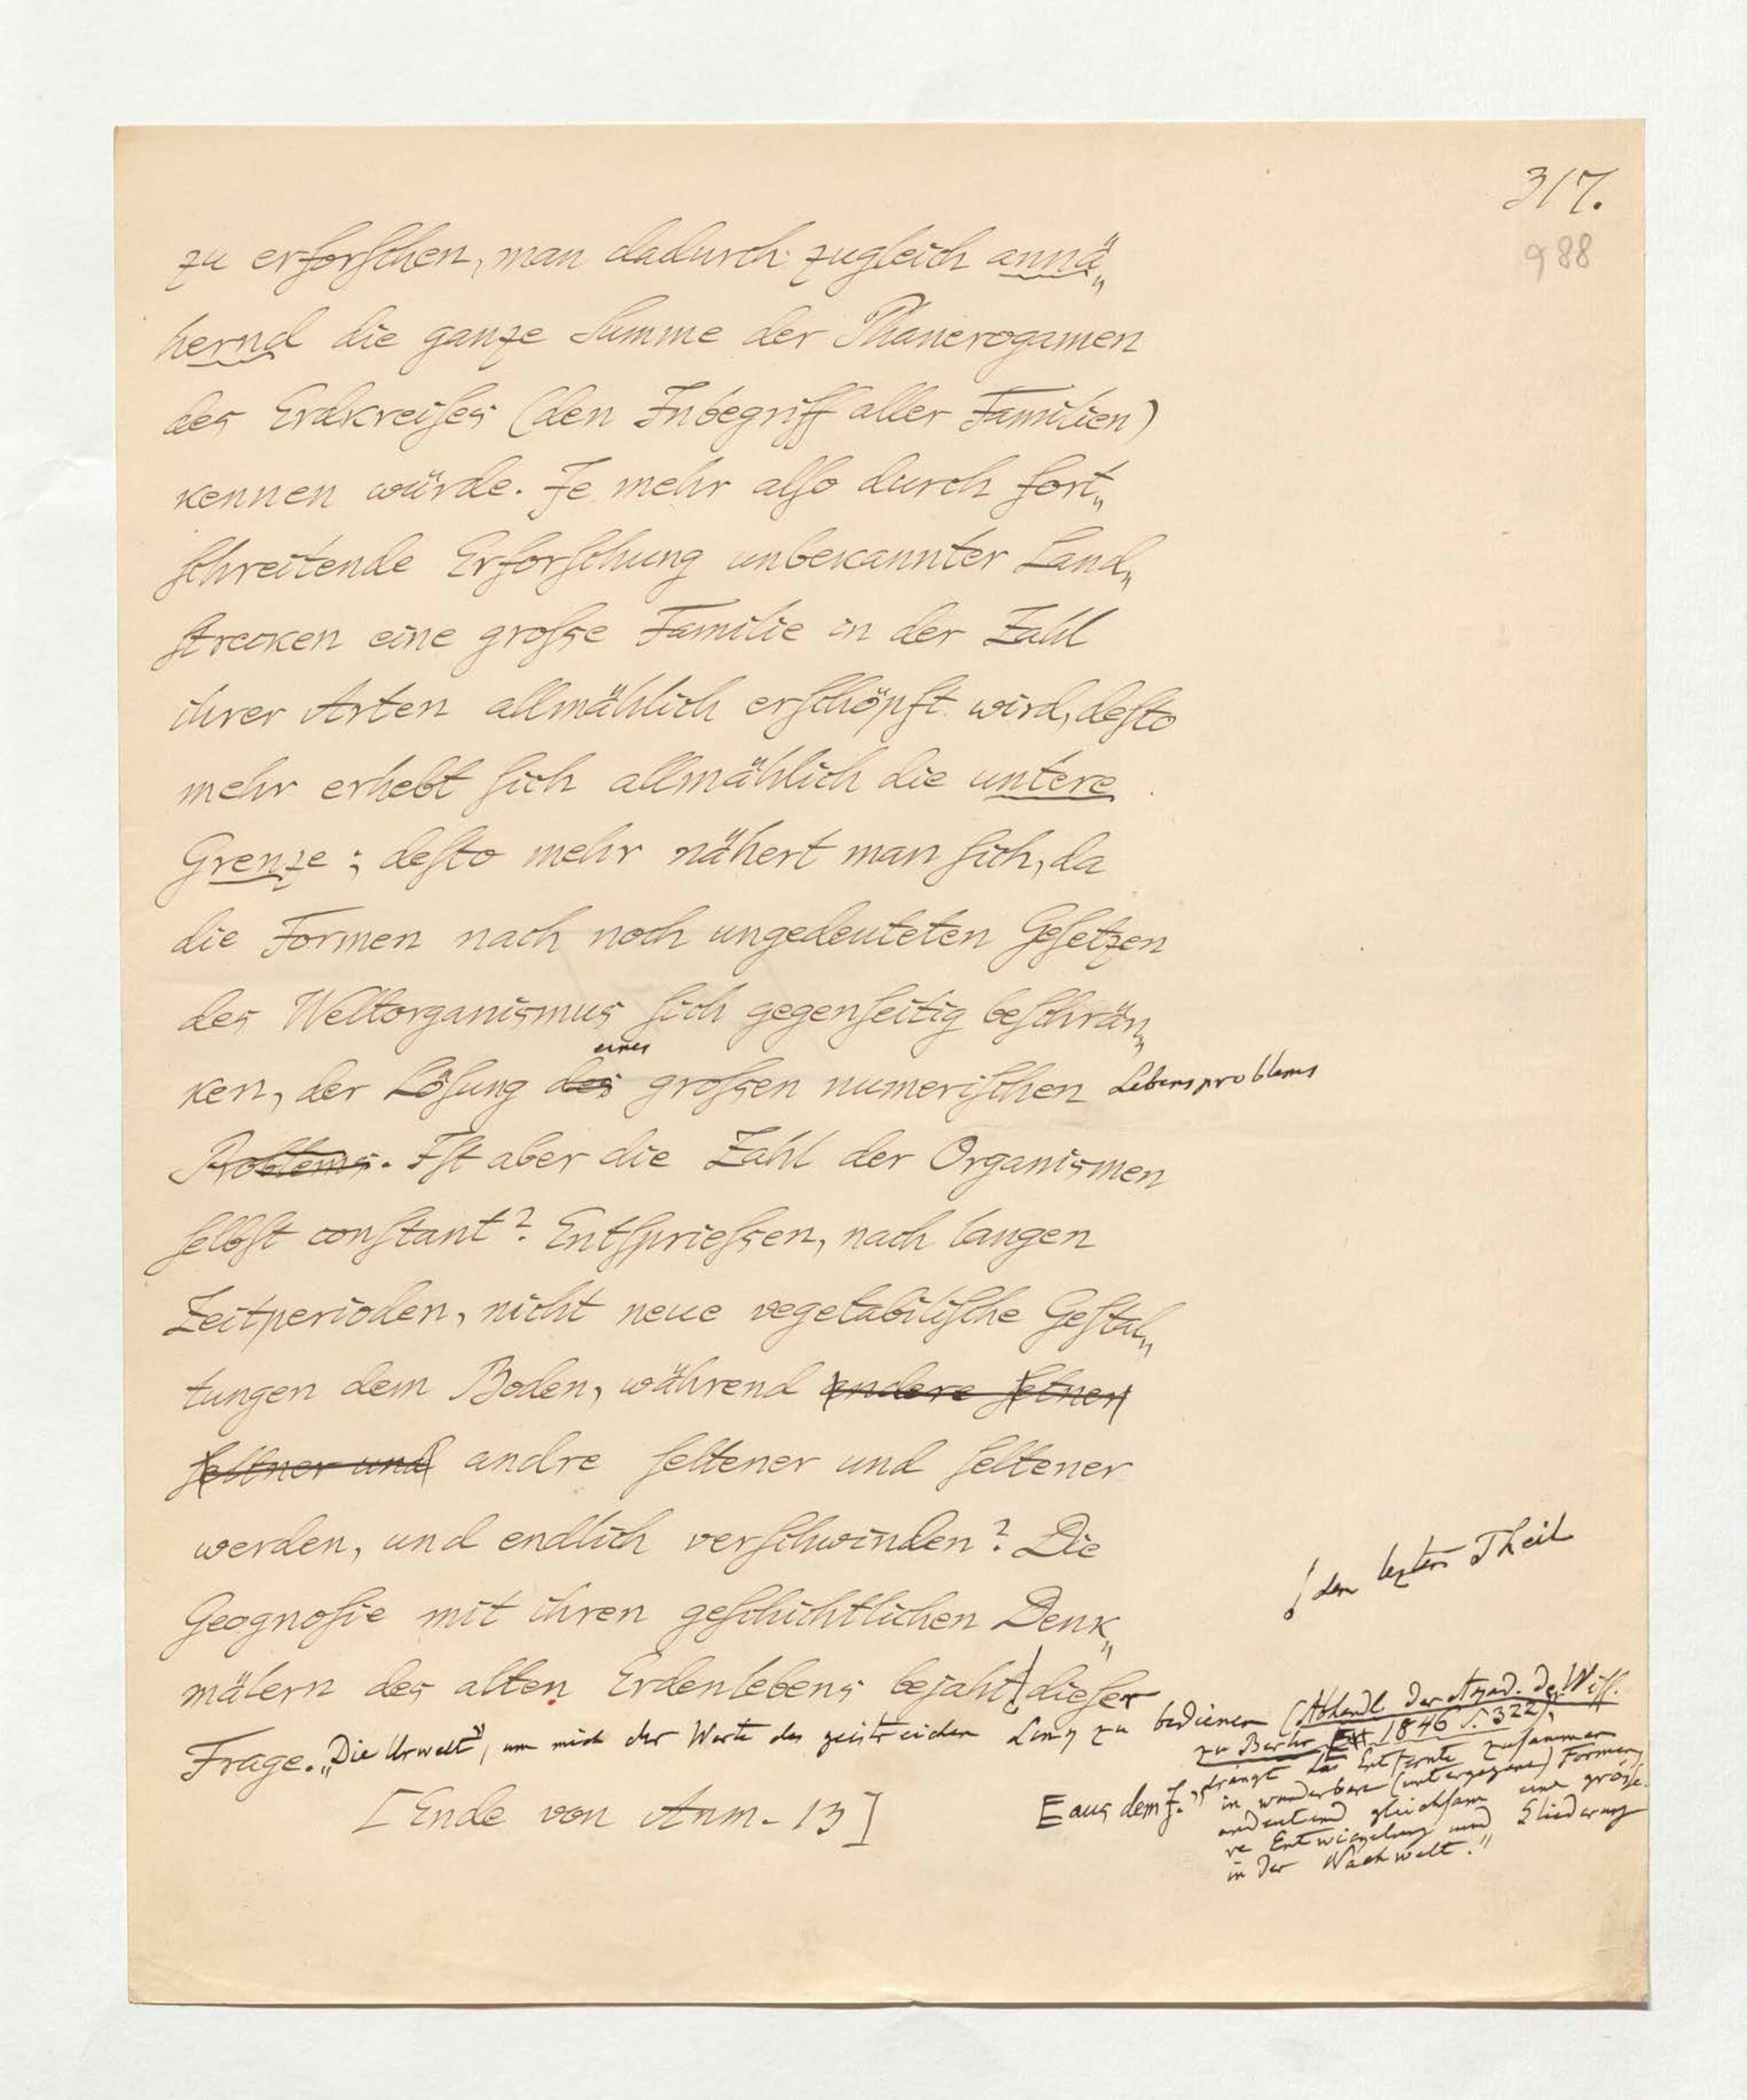 317.
988
zu erforschen, man dadurch zugleich annä„
hernd die ganze Summe der Phanerogamen
des Erdkreises (den Inbegriff aller Familien)
kennen würde. Je mehr also durch fort„
schreitende Erforschung unbekannter Land„
strecken eine grosse Familie in der Zahl
ihrer Arten allmählich erschöpft wird, desto
mehr erhebt sich allmählich die untere
Grenze; desto mehr nähert man sich, da
die Formen nach noch ungedeuteten Gesetzen
des Weltorganismus sich gegenseitig beschrän„
eines
ken, der Lösung des grossen numerischen Lebensproblems
Problems. Ist aber die Zahl der Organismen
selbst constant? Entspriessen, nach langen
Zeitperioden, nicht neue vegetabilische Gestal„
tungen dem Boden, während andere seltner
seltner und andre seltener und seltener
werden, und endlich verschwinden? Die
Geognosie mit ihren geschichtlichen Denk„
! den lezten Theil
mälern des alten Erdenlebens bejaht dieser
Frage. „Die Urwelt", um mich der Worte des geistreichen Link zu bedienen (Abhandl. der Akad. der Wiss.
zu Berlin 1846 S. 322),
„drängt das Entfernte zusammen
E aus dem J. in wunderbare (untergegane) Formen,
andeutend gleichsam eine grösse„
re Entwickelung und Gliederung
in der Nachwelt."
[Ende von Anm. 13]